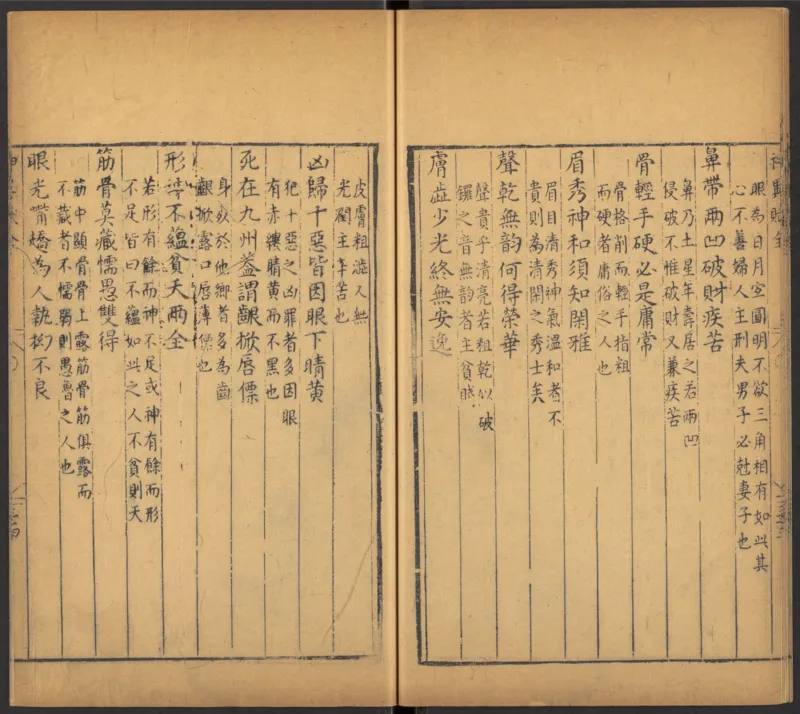 眼為日月宜圓明不欲三角相有如此其
心不善婦人主刑夫男子必尅妻子也
鼻帶兩凹破財疾苦
鼻乃土星年壽居之若兩凹
侵破不惟破財又兼疾苦
骨輕手硬必是庸常
骨格削而輕手指粗
而硬者庸俗之人也
眉秀神和須知閑雅
眉目清秀神氣溫和者不
貴則為清閑之秀士矣
聲乾無韵何得榮華
聲貴乎清亮若粗乾似破
鑼之音無韵者主貧賤
膚澁少光終無安逸
皮膚粗澁人無
光潤主辛苦也
凶歸十惡皆因眼下睛黃
犯十惡之凶罪者多因眼
有赤縷睛黃而不黑也
死在九州葢謂齦掀唇僄
身歿於他鄉者多為齒
齦掀露口唇薄僄也
形神不蘊貧夭兩全
若形有餘而神不足或神有餘而形
不足皆曰不蘊如此之人不貧則夭
筋骨莫藏懦愚雙得
筋中顯骨骨上露筋骨筋俱露而
不藏者不懦弱則愚魯之人也
眼光嘴橋為人執拗不良